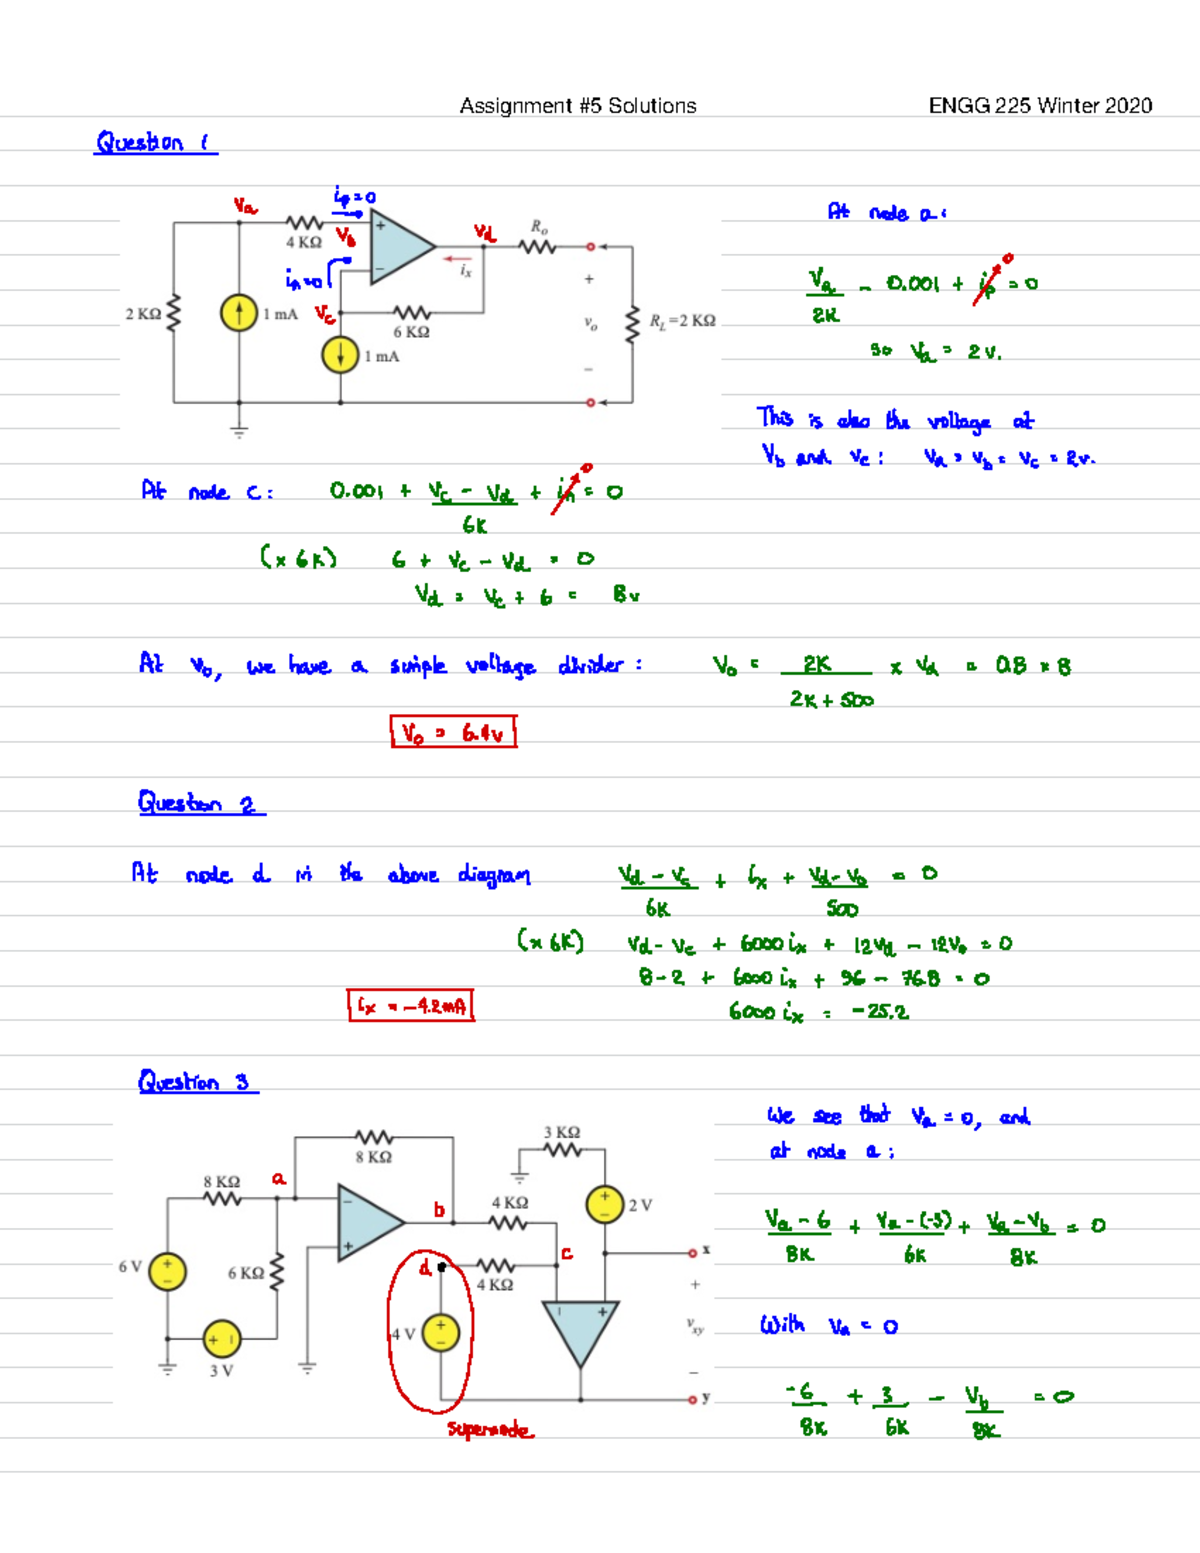 Assignment #5 Solutions ENGG 225 Winter 2020
Question 1
Va
ip=0
4 KΩ
Vb
+
−
in=0
Vd
Ro
ix
2 KΩ
1 mA
Vc
6 KΩ
1 mA
+
vo
−
RL=2 KΩ
At node a:
Va/2K − 0.001 + ip = 0
0
so Va = 2v.
This is also the voltage at
Vb and Vc: Va = Vb = Vc = 2v.
At node c: 0.001 + (Vc − Vd)/6K + in = 0
0
(x 6K) 6 + Vc − Vd = 0
Vd = Vc + 6 = 8v
At Vo, we have a simple voltage divider: Vo = 2K/(2K + 500) x Vd = 0.8 x 8
Vo = 6.4v
Question 2
At node d in the above diagram (Vd − Vc)/6K + ix + (Vd − Vo)/500 = 0
(x 6K) Vd − Vc + 6000 ix + 12Vd − 12Vo = 0
8 − 2 + 6000 ix + 96 − 76.8 = 0
ix = −4.2mA 6000 ix = −25.2
Question 3
8 KΩ
8 KΩ
a
−
+
b
3 KΩ
4 KΩ
+
−
2 V
c
d
4 KΩ
6 V
+
−
6 KΩ
+ −
3 V
4 V
+
−
− +
x
+
vxy
−
y
supernode
We see that Va = 0, and
at node a:
(Va − 6)/8K + (Va − (−3))/6K + (Va − Vb)/8K = 0
With Va = 0
−6/8K + 3/6K − Vb/8K = 0